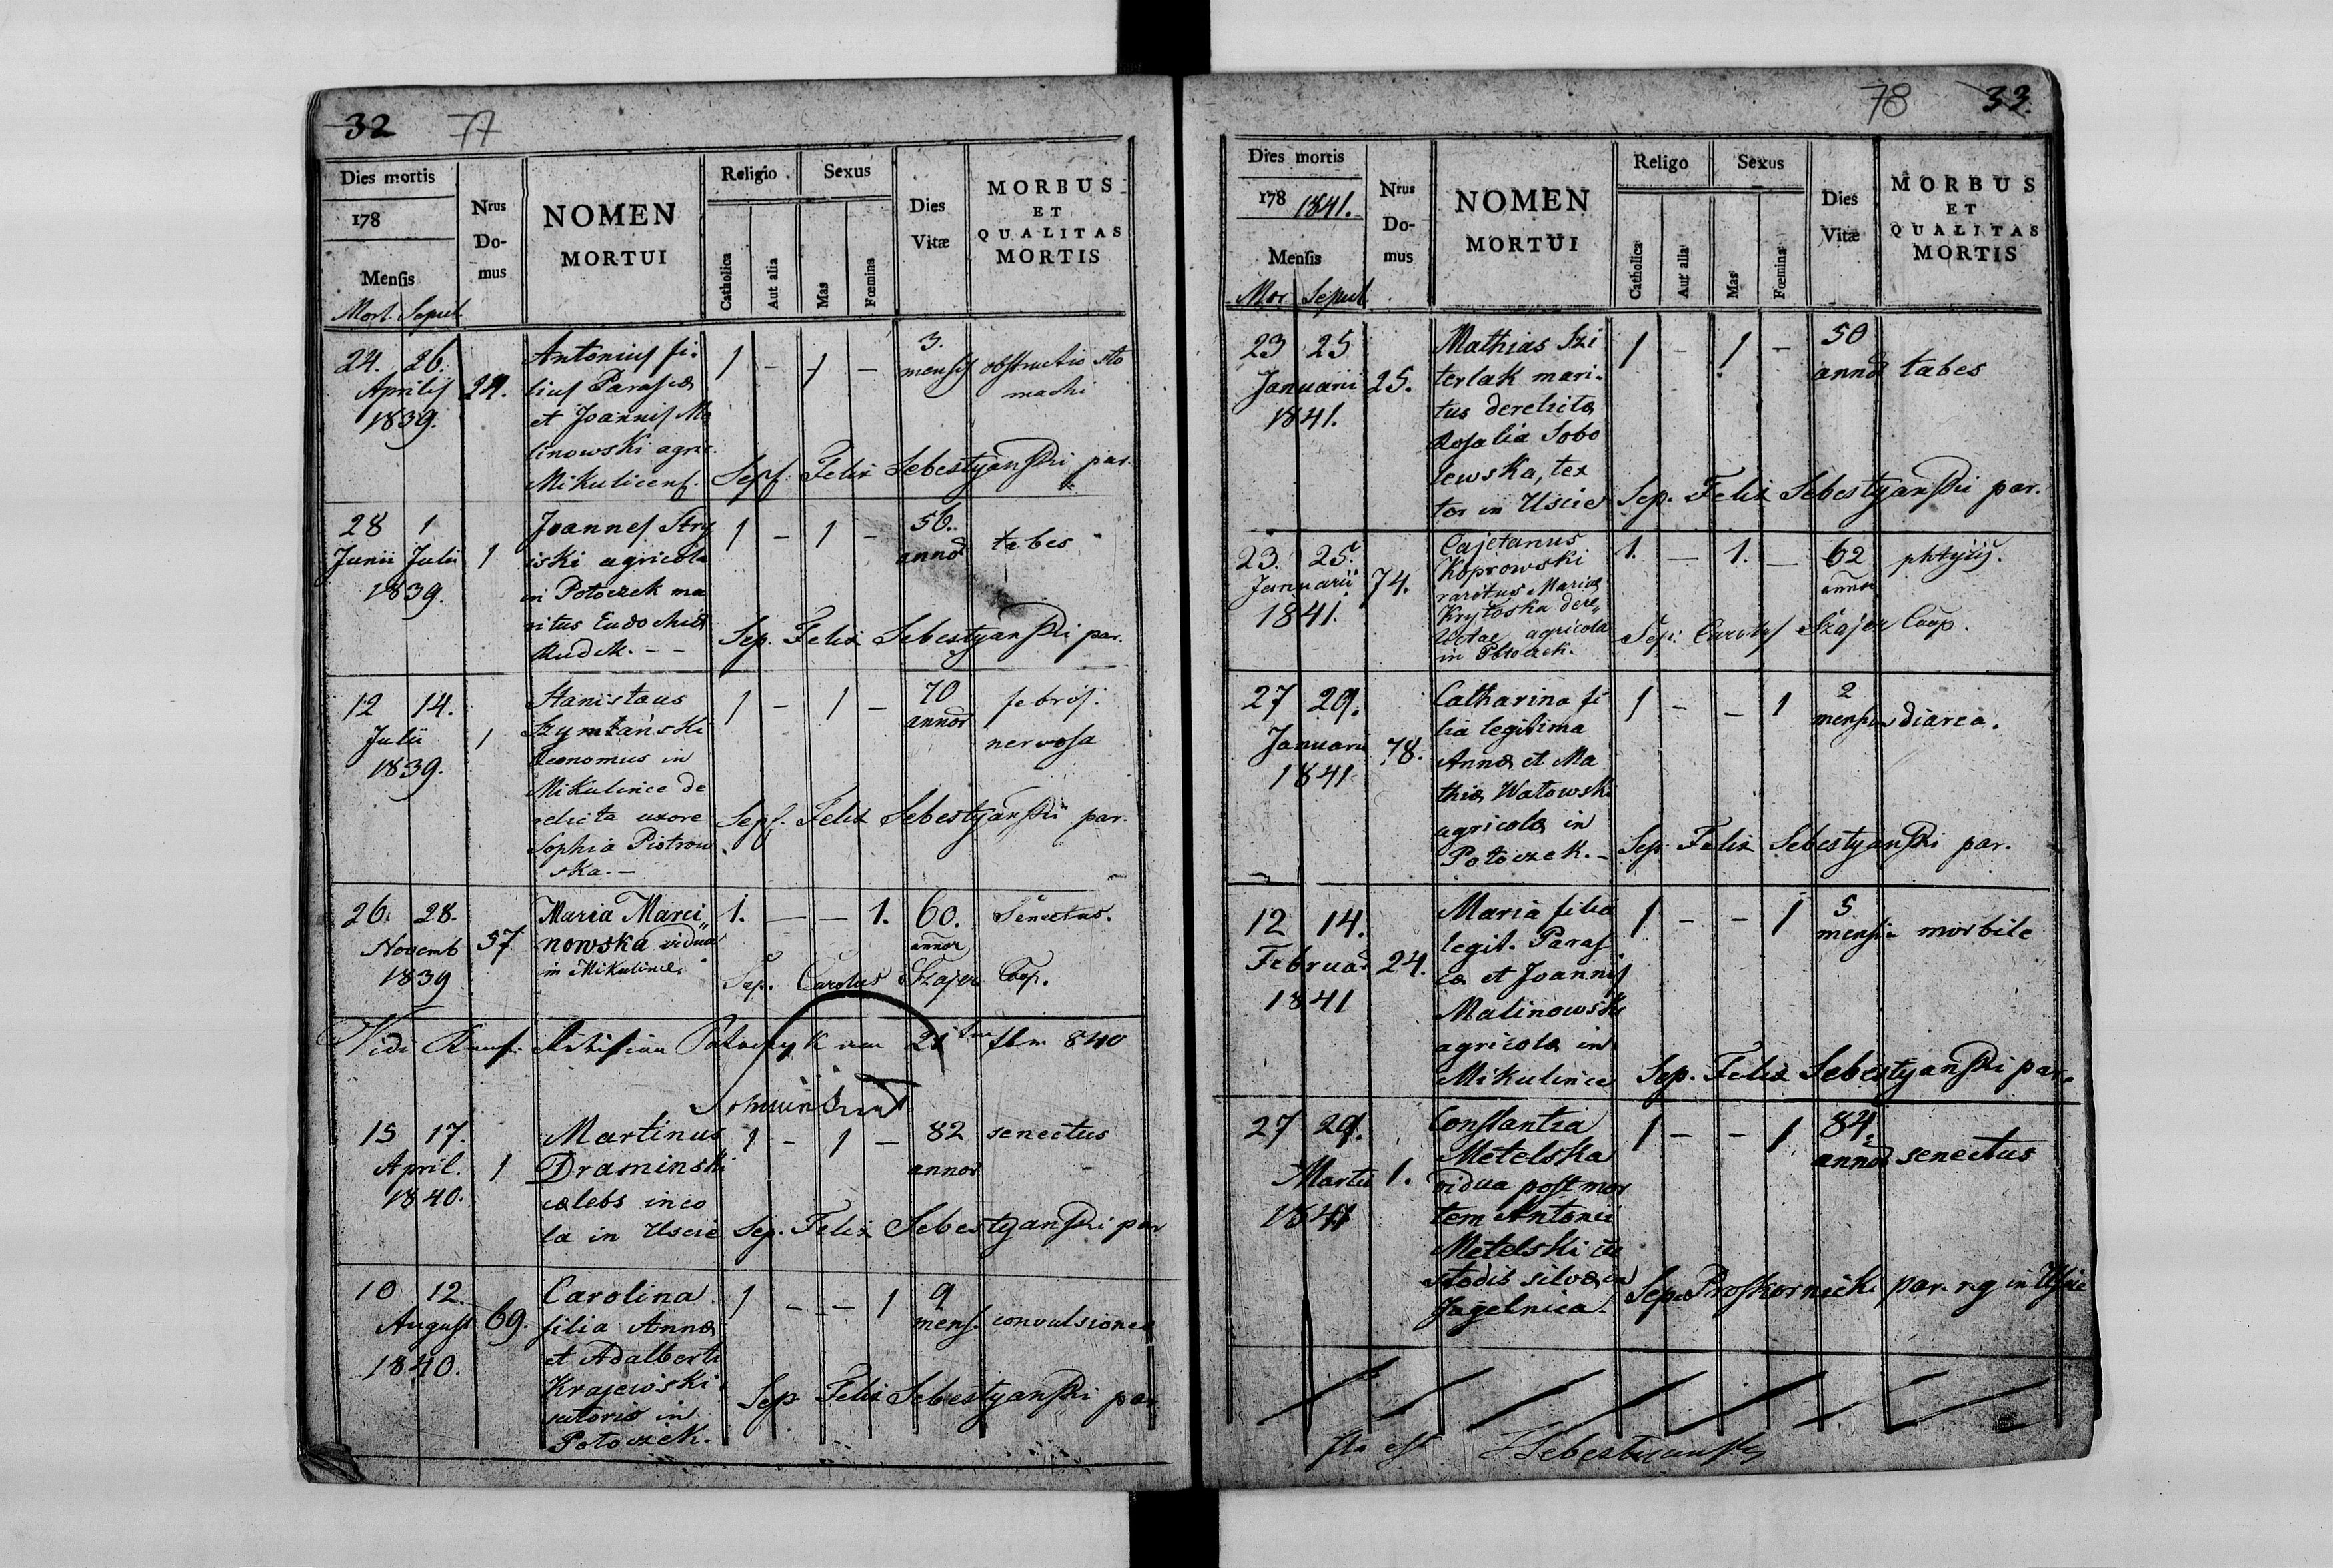 32 77
Dies mortis
178
Mensis
Mort. Sepul.
Nrus
Do-
mus
NOMEN
MORTUI
Religio
Catholica
Aut alia
Sexus
Mas
Fœmina
Dies
Vitæ
MORBUS
ET
QUALITAS
MORTIS
24. 26.
Aprilis
1839.
24.
Antonius fi-
lius Parasceæ
et Joannis Ma
linowski agric.
Mikulicens.
1 - 1 -
3.
mensis
obstructio sto
machi
Sep. Felix Sebestyański par.
28 1
Junii Julii
1839.
1
Joannes Stry
iski agricola
in Potoczek ma
ritus Eudochiæ
Rudek. - -
1 - 1 -
56.
annor
tabes
Sep. Felix Sebestyański par.
12 14.
Julii
1839.
1
Stanislaus
Szymtański
Œconomus in
Mikulince de
relicta uxore
Sophia Piotrow
ska. -
1 - 1 -
70
annor
febris
nervosa
Sep. Felix Sebestyański par.
26. 28.
Novemb
1839
57
Maria Marci„
nowska vidua
in Mikulince.
1. - - 1.
60.
annor
Senectus.
Sep. Carolus Szajer Coop.
Vidi 840
15 17.
April.
1840.
1
Martinus
Draminski
cælebs inco
la in Uscie
1 - 1 -
82
annor
senectus
Sep. Felix Sebestyański par
10 12.
August
1840.
69.
Carolina
filia Annæ
et Adalberti
Krajewski
sutoris in
Potoczek.
1 - - 1
9
mens.
convulsiones
Sep Felix Sebestyański par.
78 33.
Dies mortis
178 1841.
Mensis
Mor. Sepul.
Nrus
Do-
mus
NOMEN
MORTUI
Religo
Catholica
Aut alia
Sexus
Mas
Fœmina
Dies
Vitæ
MORBUS
ET
QUALITAS
MORTIS
23 25
Januarii
1841.
25.
Mathias Szi
terlak mari-
tus derelicta
Rosalia Sobo
lewska, tex
tor in Uscie
1 - 1 -
50
annor
tabes
Sep. Felix Sebestyański par.
23. 25.
Januarii
1841.
74.
Cajetanus
Koprowski
maritus Mariæ
dere„
lictae agricola
in Potoczek.
1. - 1. -
62
annor
phtysis.
Sep. Carolus Szajer Coop.
27 29.
Januarii
1841
78.
Catharina fi
lia legitima
Annæ et Ma
thiæ Watowski
agricolæ in
Potoczek. -
1 - - 1
2
mensium
diarea.
Sep. Felix Sebestyański par.
12 14.
Februar
1841
24.
Maria filia
legit. Paras
ceæ et Joannis
Malinowski
agricolæ in
Mikulince
1 - - 1
5
mensiu
morbile
Sep. Felix Sebestyański par.
27 29.
Martii
1841
1.
Constantia
Metelska
vidua post mor
tem Antonii
Metelski cu
stodis silvæ in
Jagelnica.
1 - - 1
84.
annor
senectus
Sep. Proskornicki par. r.g in Uscie
Ita est Sebestyański